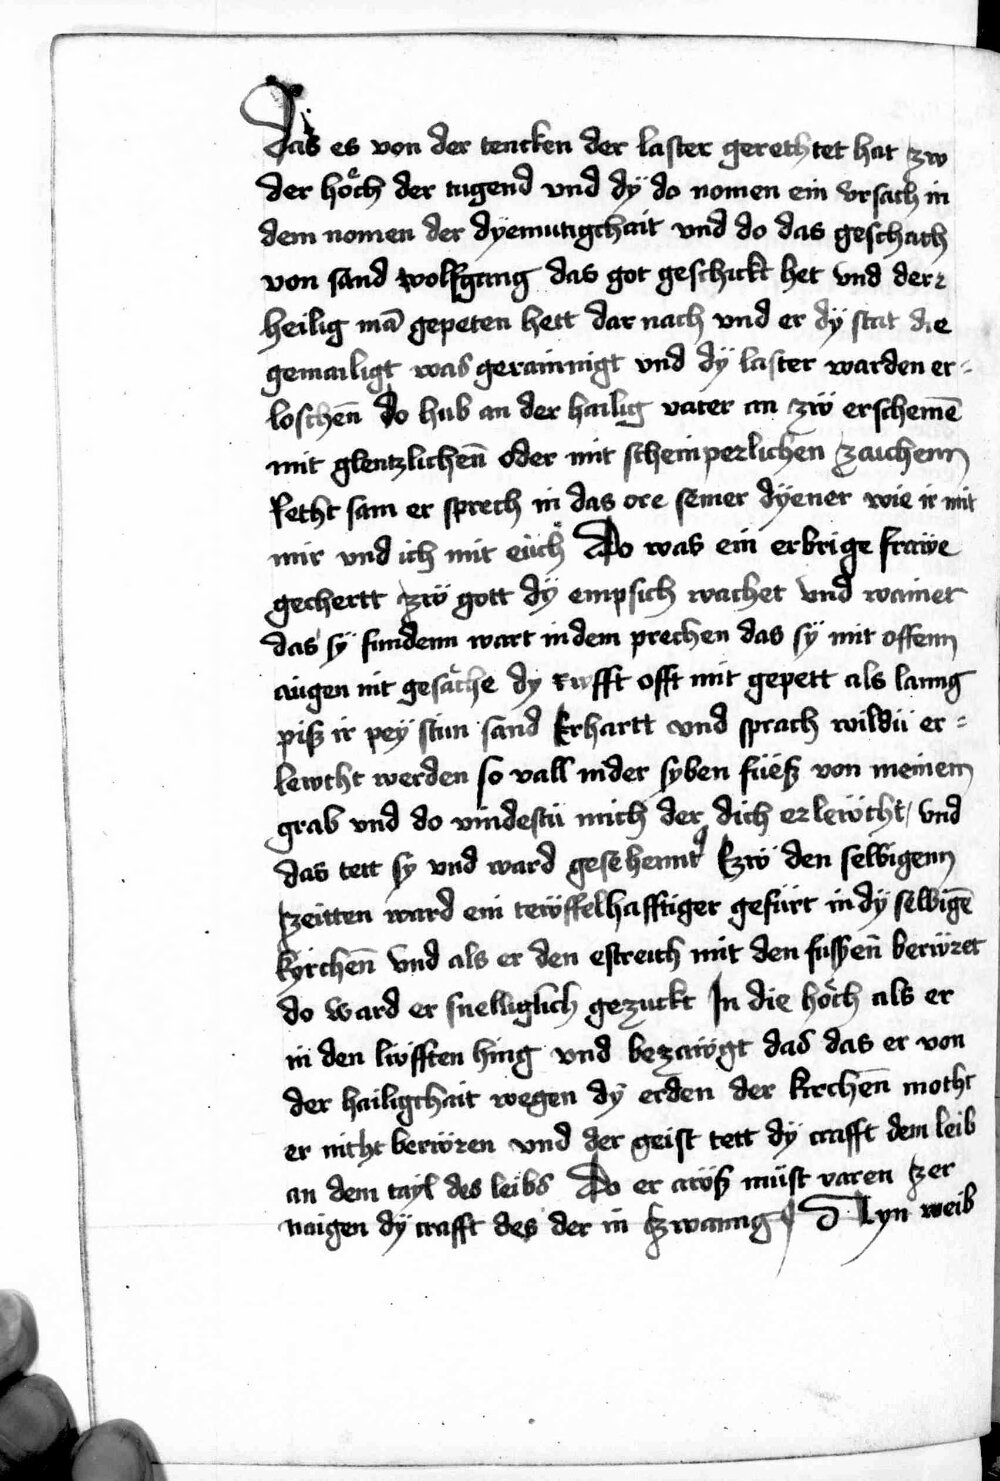 Das es von der tencken der laster gerechtet hat zw
der hoͤch der tugend vnd dÿ do nomen ein vrsach in
dem nomen der dÿemutigchait vnd do das geschach
von sand wolfgang das got geschickt het vnd derr
heilig mā gepeten hett dar nach vnd er dÿ stat die
gemailigt was gerainnigt vnd dÿ laster warden er-
loschen̄ do hub an der hailig vater an zẅ erschemē
mit glentzlichen̄ oder mit scheinperlichen zaichenn
Recht sam er sprech in das ore seiner dÿener wie ir mit
mir vnd ich mit eüch Do was ein erbrige fraẅe
gechertt zẅ gott dÿ empsich wachet vnd wainet
das sÿ fundenn wart in dem prechen das sÿ mit offenn
augen nit gesaͤche dy rwfft offt mit gepett als lanng
piß ir peÿ stun sand Erhartt vnd sprach wildü er-
lewcht werden so vall nider syben füeß von meinem
grab vnd do vindestu mich der dich erleẅcht / vnd
das tett sy vnd ward gesehennt Czẅ den selbigenn
tzeitten ward ein teẅffelhafftiger gefürt in dÿ selbigē
kyrchen̄ vnd als er den estreich mit den fussen̄ berẅret
do ward er snelliglich gezuckt In die hoͤch als er
in den lẅfften hing vnd bezaẅgt das das er von
der hailigchait wegen dÿ erden der kirchen̄ mocht
er nicht berẅren vnd der geist tett dÿ crafft dem leib
an dem tayl des leibs Do er aẅß müst varen tzer
naigen dÿ crafft des der in tzwanng Ayn weib